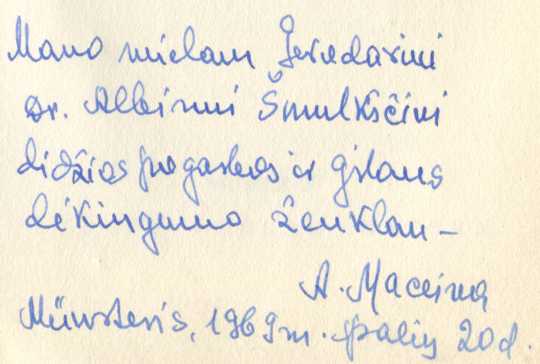 Mano mielam Geradariui
Dr. Albinui Šmulkščiui
didžios pagarbos ir gilaus
dėkingumo ženklan –
A. Maceina
Münsteris, 1969 m. spalių 20 d.